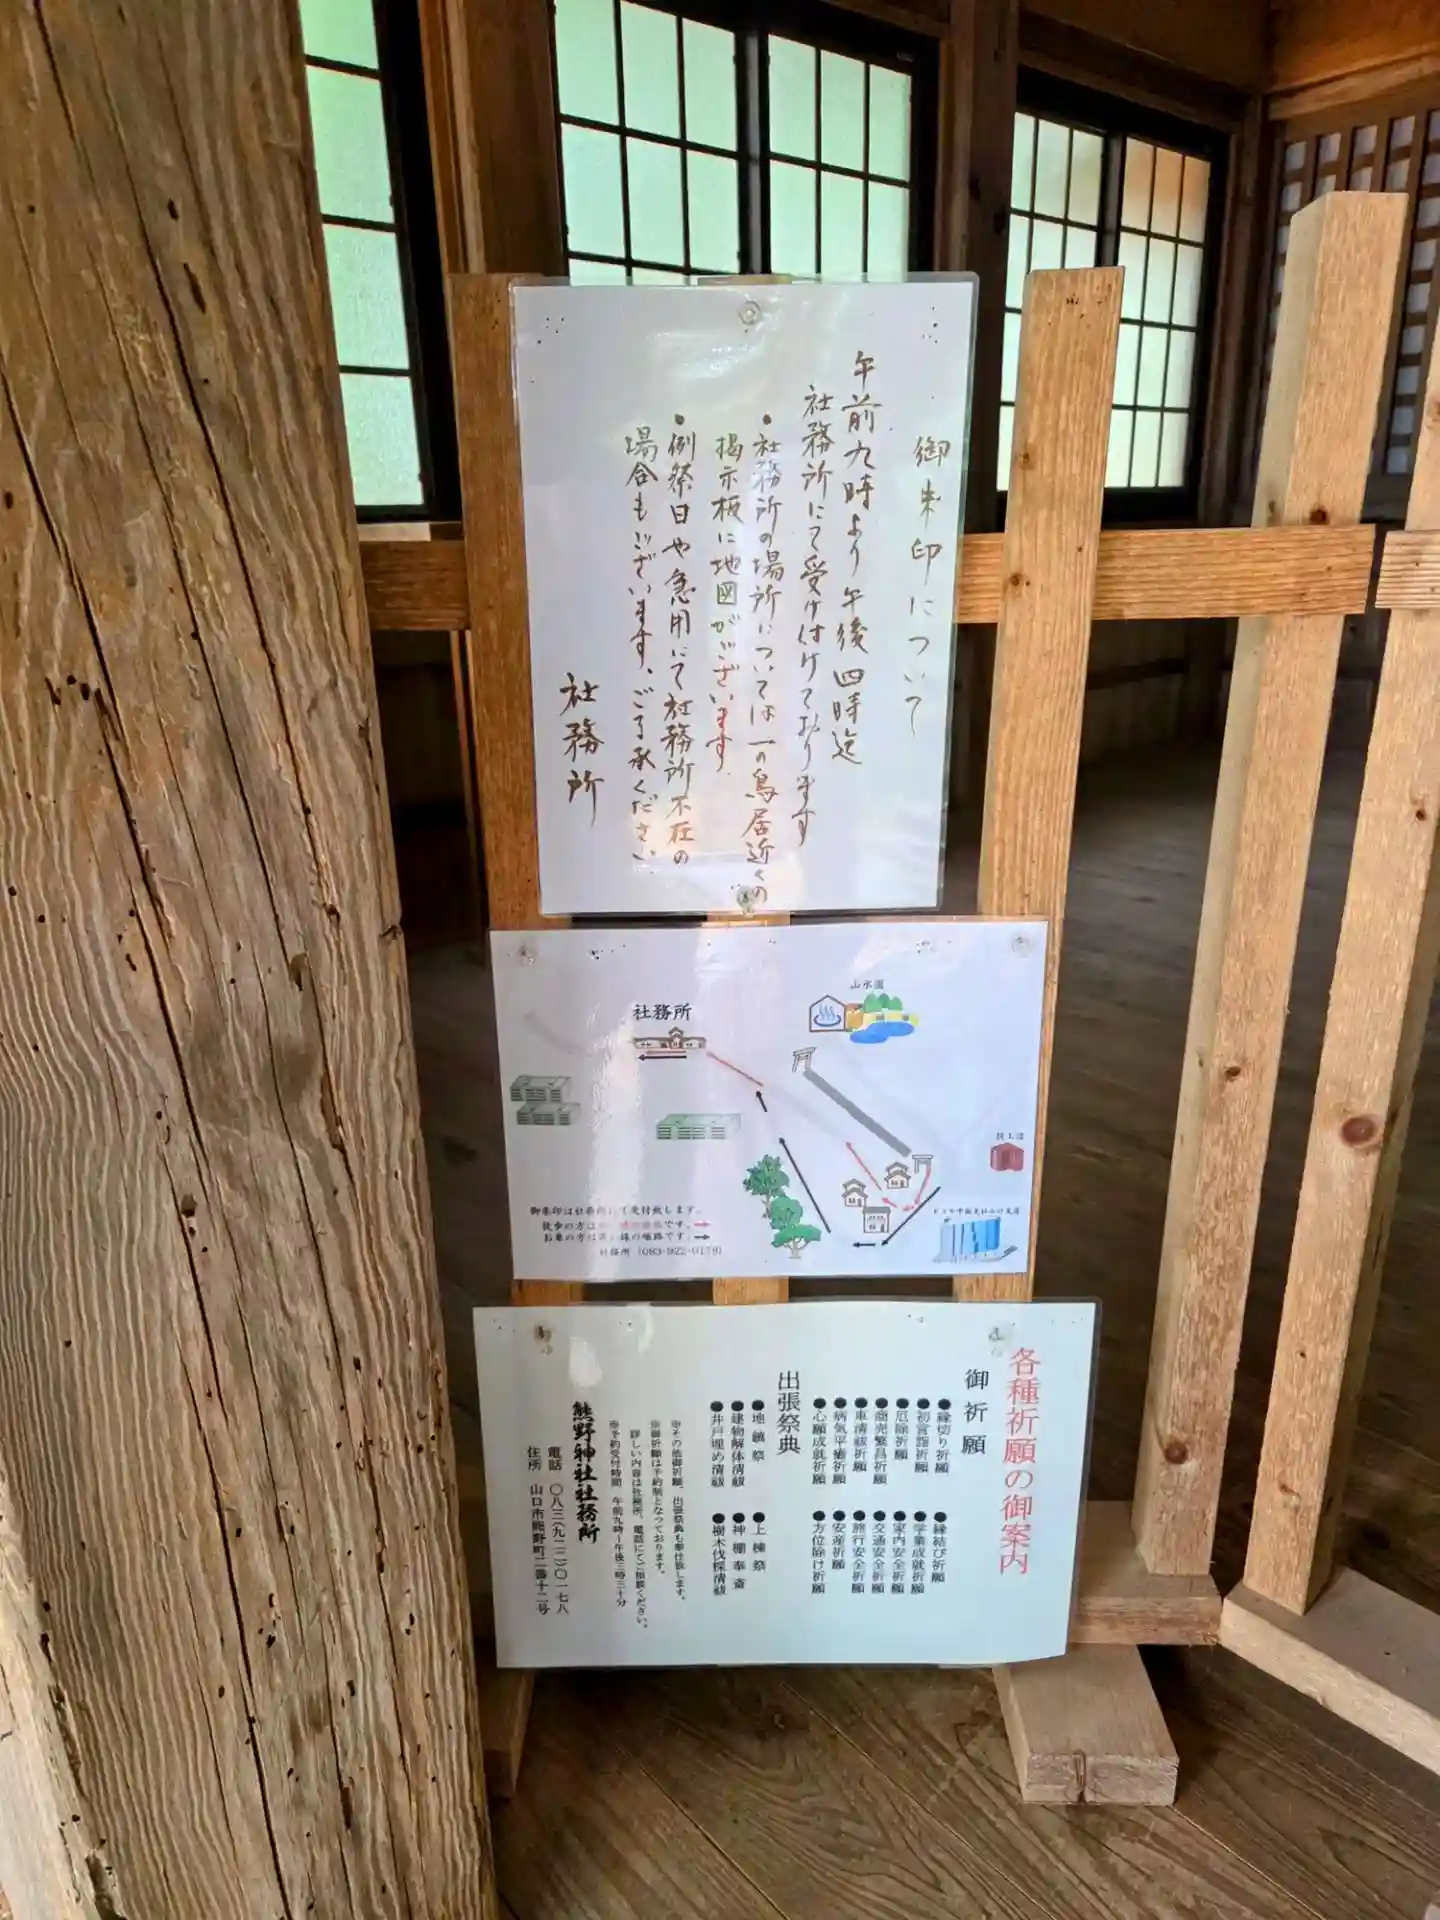 御朱印について
午前九時より午後四時迄
社務所にて受け付けております
●社務所の場所については一の鳥居近くの
掲示板に地図がございます
●例祭日や急用にて社務所不在の
場合もございます、ご了承ください
社務所
山水園
社務所
御朱印は社務所にて受付致します。
徒歩の方は
です。
お車の方は黒い線の順路です。
社務所 (083-922-0178)
各種祈願の御案内
御祈願
●縁切り祈願 ●縁結び祈願
●初宮詣祈願 ●学業成就祈願
●厄除祈願 ●家内安全祈願
●商売繁昌祈願 ●交通安全祈願
●車清祓祈願 ●旅行安全祈願
●病気平癒祈願 ●安産祈願
●心願成就祈願 ●方位除け祈願
出張祭典
●地鎮祭 ●上棟祭
●建物解体清祓 ●神棚奉斎
●井戸埋め清祓 ●樹木伐採清祓
※その他御祈願、出張祭典も奉仕致します。
※御祈願は予約制となっております。
詳しい内容は社務所、電話にてご相談ください。
※予約受付時間 午前九時~午後三時三十分
熊野神社社務所
電話 〇八三(九二二)〇一七八
住所 山口市熊野町二番十二号